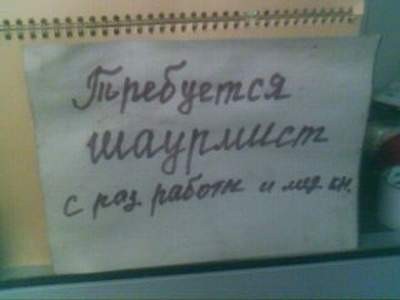 Требуется
шаурмист
с раз работы и мед кн.